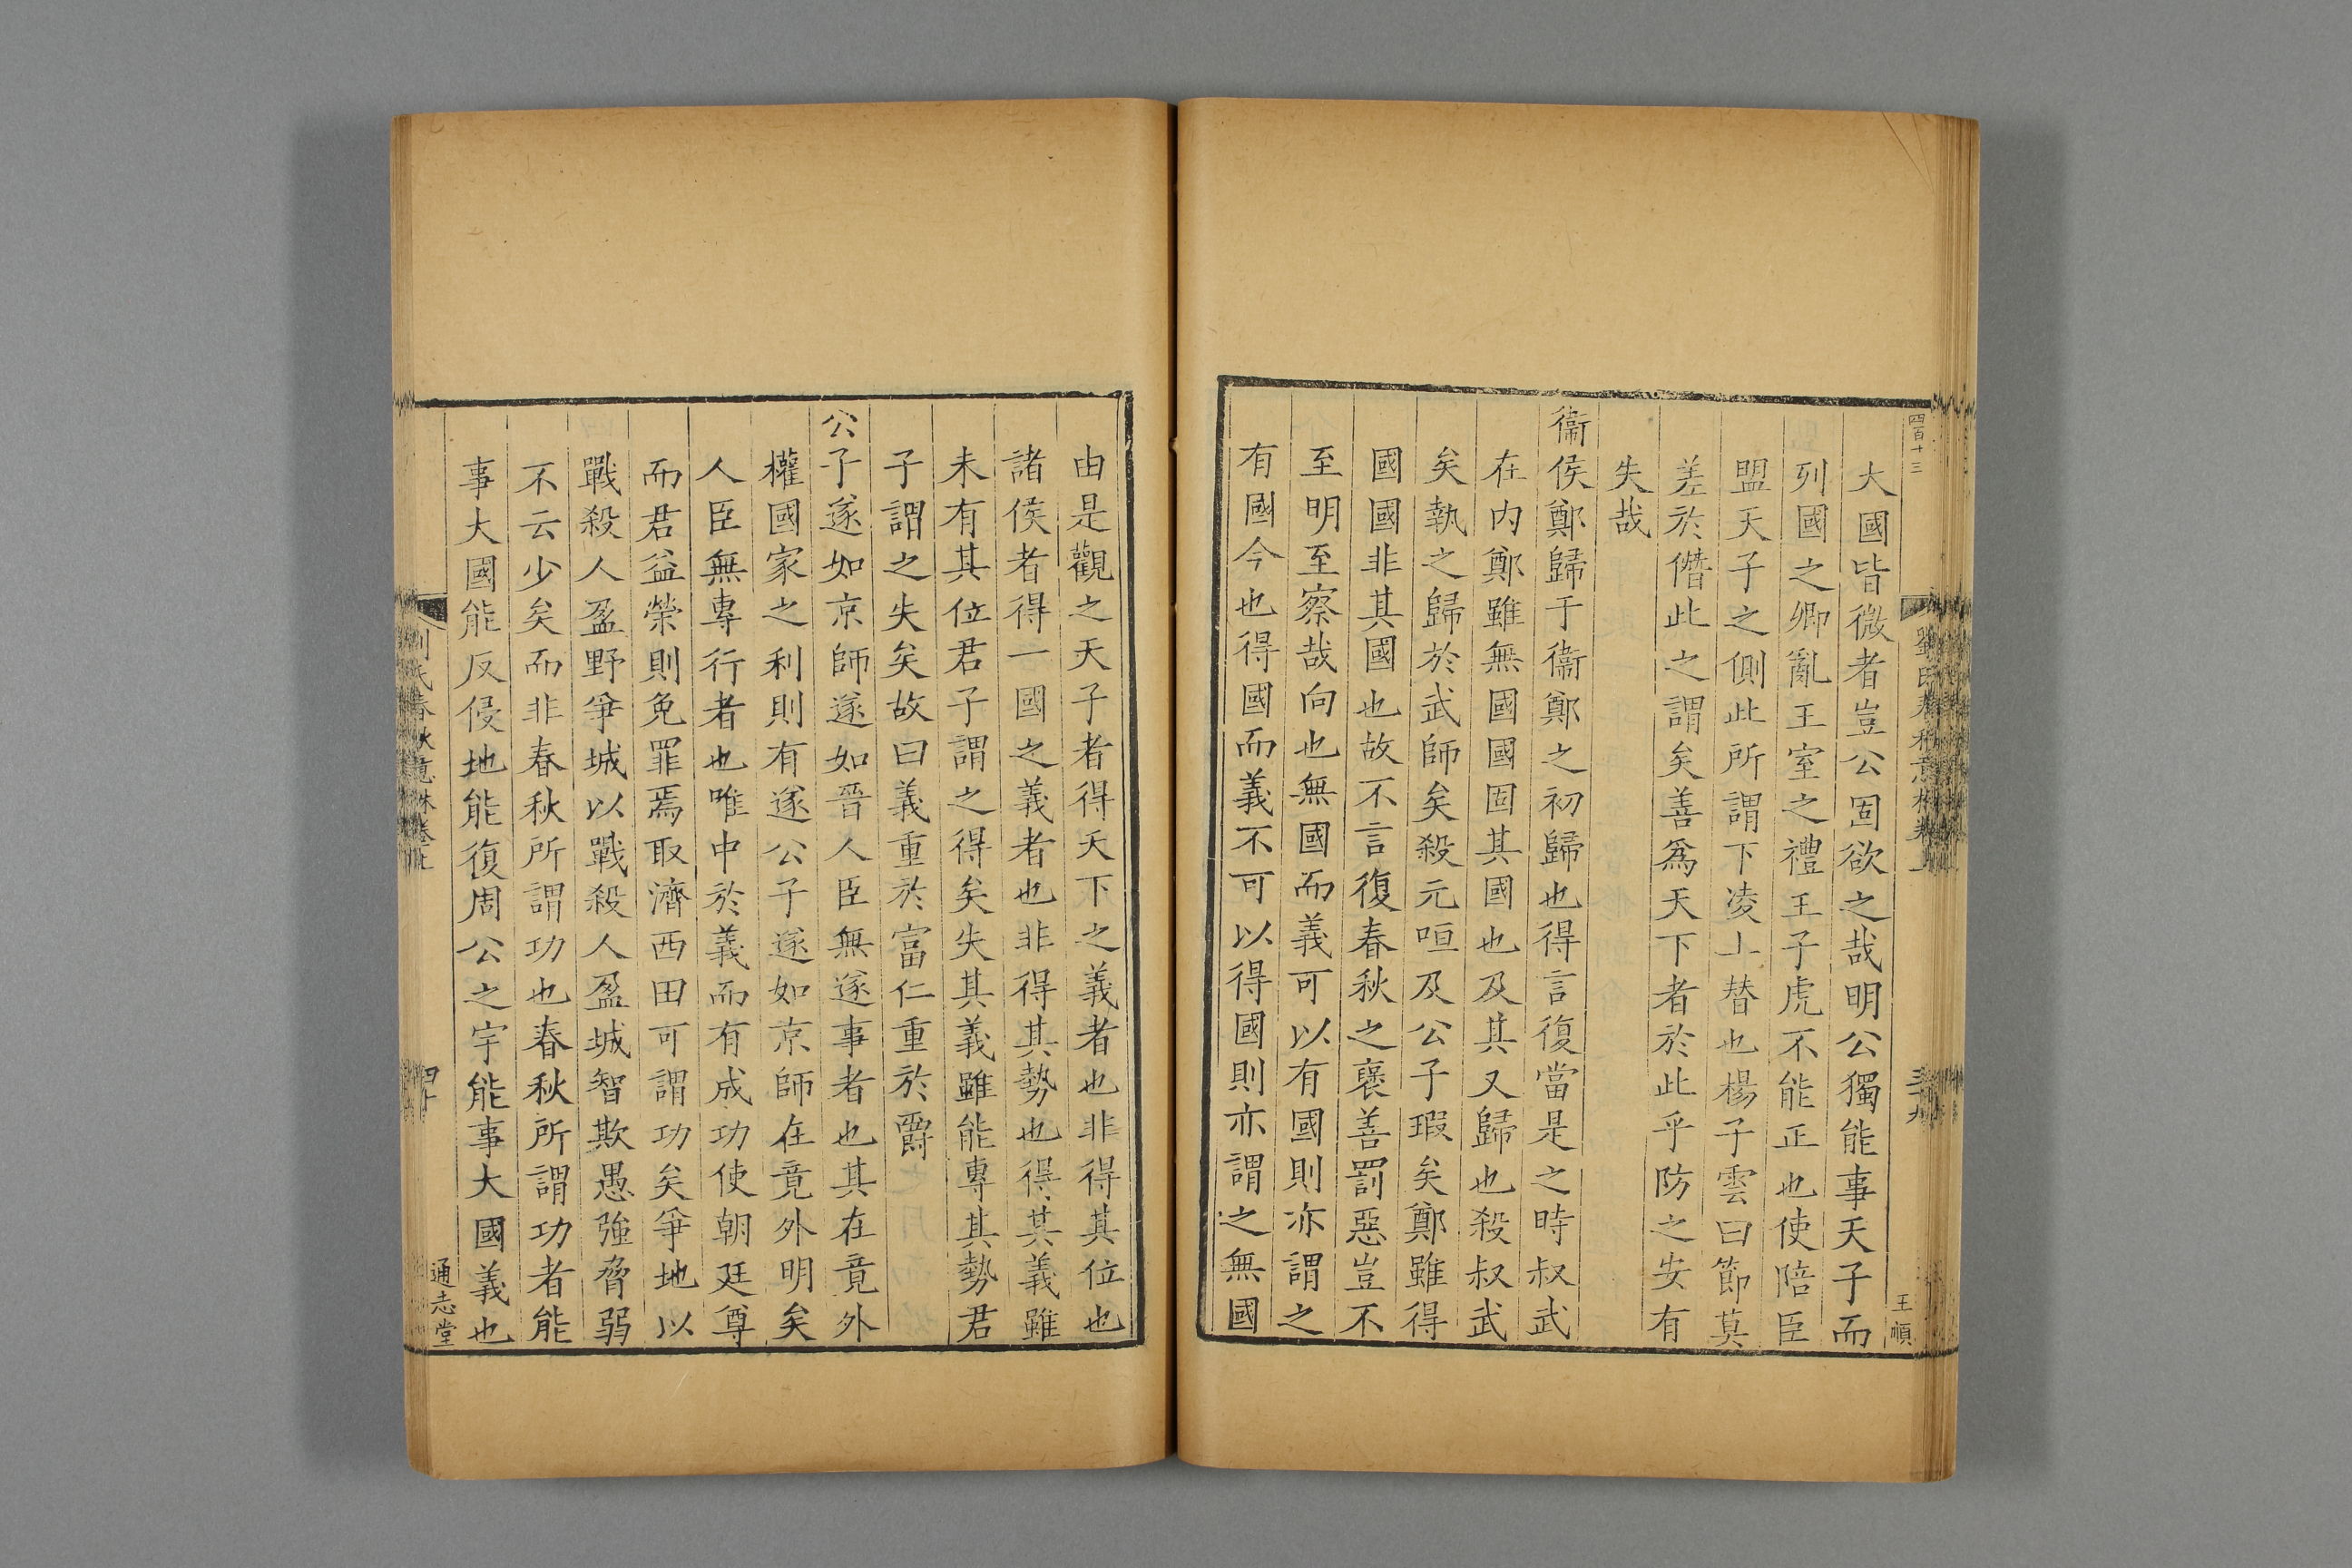 四百十三
王順
大國皆微者豈公固欲之哉明公獨能事天子而
列國之卿亂王室之禮王子虎不能正也使陪臣
盟天子之側此所謂下凌上替也楊子雲曰節莫
差於僭此之謂矣善爲天下者於此乎防之安有
失哉
衞侯鄭歸于衞鄭之初歸也得言復當是之時叔武
在内鄭雖無國國固其國也及其又歸也殺叔武
矣執之歸於武師矣殺元咺及公子瑕矣鄭雖得
國國非其國也故不言復春秋之襃善罰惡豈不
至明至察哉向也無國而義可以有國則亦謂之
有國今也得國而義不可以得國則亦謂之無國
由是觀之天子者得天下之義者也非得其位也
諸侯者得一國之義者也非得其勢也得其義雖
未有其位君子謂之得矣失其義雖能專其勢君
子謂之失矣故曰義重於富仁重於爵
公子遂如京師遂如晉人臣無遂事者也其在竟外
權國家之利則有遂公子遂如京師在竟外明矣
人臣無專行者也唯中於義而有成功使朝廷尊
而君益榮則免罪焉取濟西田可謂功矣爭地以
戰殺人盈野爭城以戰殺人盈城智欺愚強脅弱
不云少矣而非春秋所謂功也春秋所謂功者能
事大國能反侵地能復周公之宇能事大國義也
通志堂